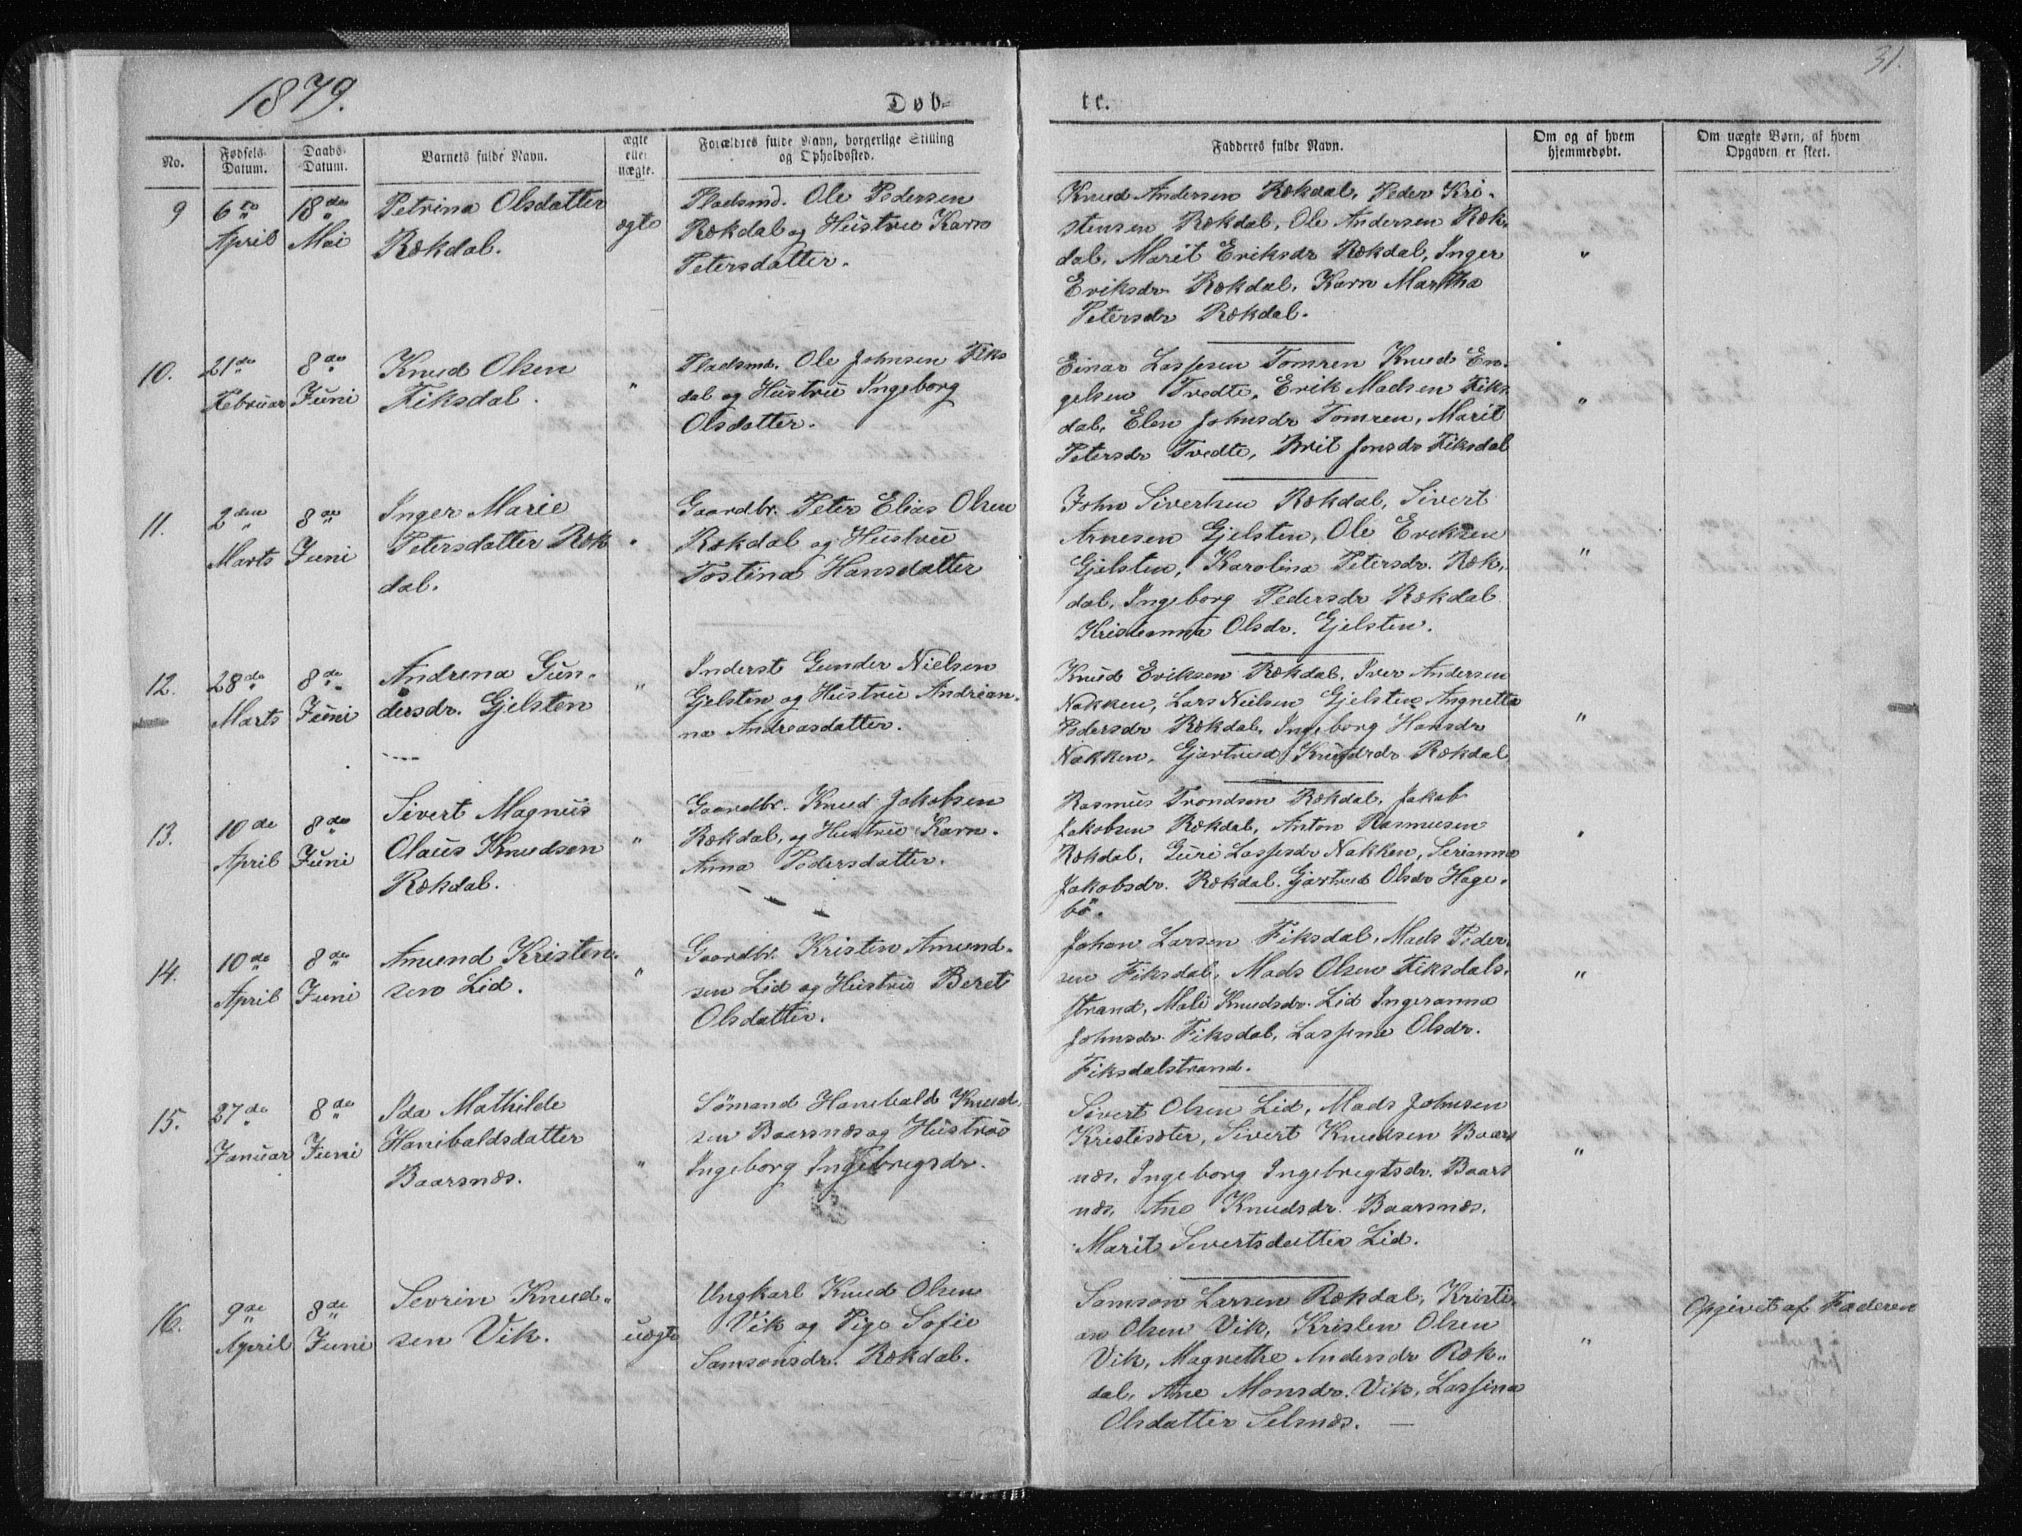 31.
1879.
Døb=
te.
No.
Fødsels-
Datum.
Daabs-
Datum.
Barnets fulde Navn.
ægte
eller
uægte.
Forældres fulde Navn, borgerlige Stilling
og Opholdssted.
Fadderes fulde Navn.
Om og af hvem
hjemmedøbt.
Om uægte Børn, af hvem
Opgaven er skeet.
9
6te
April
18de
Mai
Petrina Olsdatter
Rekdal.
ægte
Pladsmd. Ole Pedersen
Rekdal og Hustru Karn
Petersdatter.
Knud Andersen Rekdal, Peder Kri-
stensen Rekdal, Ole Andersen Rek-
dal, Marit Eriksdr Rekdal, Inger
Eriksdr Rekdal, Karn Martha
Petersdr Rekdal.
"
10.
21de
Februar
8de
Juni
Knud Olsen
Fiksdal.
"
Pladsmd. Ole Johnsen Fiks
dal og Hustru Ingeborg
Olsdatter.
Einar Lassesen Tomren Knud En-
gelsen Tvedte, Erik Madsen Fiks
dal, Elen Johnsdr Tomren, Marit
Petersdr Tvedte, Brit Jonsdr Fiksdal
"
11.
2den
Marts
8de
Juni
Inger Marie
Petersdatter Rek
dal.
"
Gaardbr. Peter Elias Olsen
Rekdal og Hustru
Tostina Hansdatter
John Sivertsen Rekdal, Sivert
Arnesen Gjelsten, Ole Eriksen
Gjelsten, Karolina Petersdr. Rek-
dal, Ingeborg Pedersdr Rekdal
Kristianna Olsdr. Gjelsten.
"
12.
28de
Marts
8de
Juni
Andrena Gun-
dersdr. Gjelsten
"
Inderst Gunder Nielsen
Gjelsten og Hustru Andrean-
na Andreasdatter.
Knud Eriksen Rekdal, Iver Andersen
Nakken, Lars Nielsen Gjelsten Angnetta
Pedersdr Rekdal, Ingeborg Hansdr
Nakken, Gjertrud Knudsdr Rekdal
"
13.
10de
April
8de
Juni
Sivert Magnus
Olaus Knudsen
Rekdal.
"
Gaardbr. Knud Jakobsen
Rekdal, og Hustru Karn-
Anna Pedersdatter.
Rasmus Trondsen Rekdal, Jakob
Jakobsen Rekdal, Anton Rasmusen
Rekdal, Guri Lassesdr Nakken, Serianna
Jakobsdr. Rekdal. Gjertrud Olsdr Hage-
bö.
"
14.
10de
April
8de
Juni
Amund Kristen-
sen Lid.
"
Gaardbr. Kristen Amund-
sen Lid og Hustru Beret
Olsdatter.
Johan Larsen Fiksdal, Mads Peder-
sen Fiksdal, Mads Olsen Fiksdals-
strand, Mali Knudsdr. Lid Ingeranna
Johnsdr. Fiksdal, Lassine Olsdr.
Fiksdalstrand.
"
15.
27de
Januar
8de
Juni
Ida Mathilde
Hanibaldsdatter
Baarsnes.
"
Sömand Hanibald Knud-
sen Baarsnes og Hustru
Ingeborg Ingebregsdr.
Sivert Olsen Lid, Mads Johnsen
Kristisæter, Sivert Knudsen Baars
nes, Ingeborg Ingebrigtsdr. Baars
nes, Ane Knudsdr. Baarsnes,
Marit Sivertsdatter Lid.
"
16.
9de
April
8de
Juni
Sevrin Knud-
sen Vik.
uægte
Ungkarl Knud Olsen
Vik og Pige Sofie
Samsonsdr. Rekdal.
Samson Larsen Rekdal, Kristi-
an Olsen Vik, Kristen Olsen
Vik, Magnethe Andersdr Rek-
dal, Ane Monsdr. Vik, Lassina
Olsdatter Selsnes.
"
Opgivet af Faderen